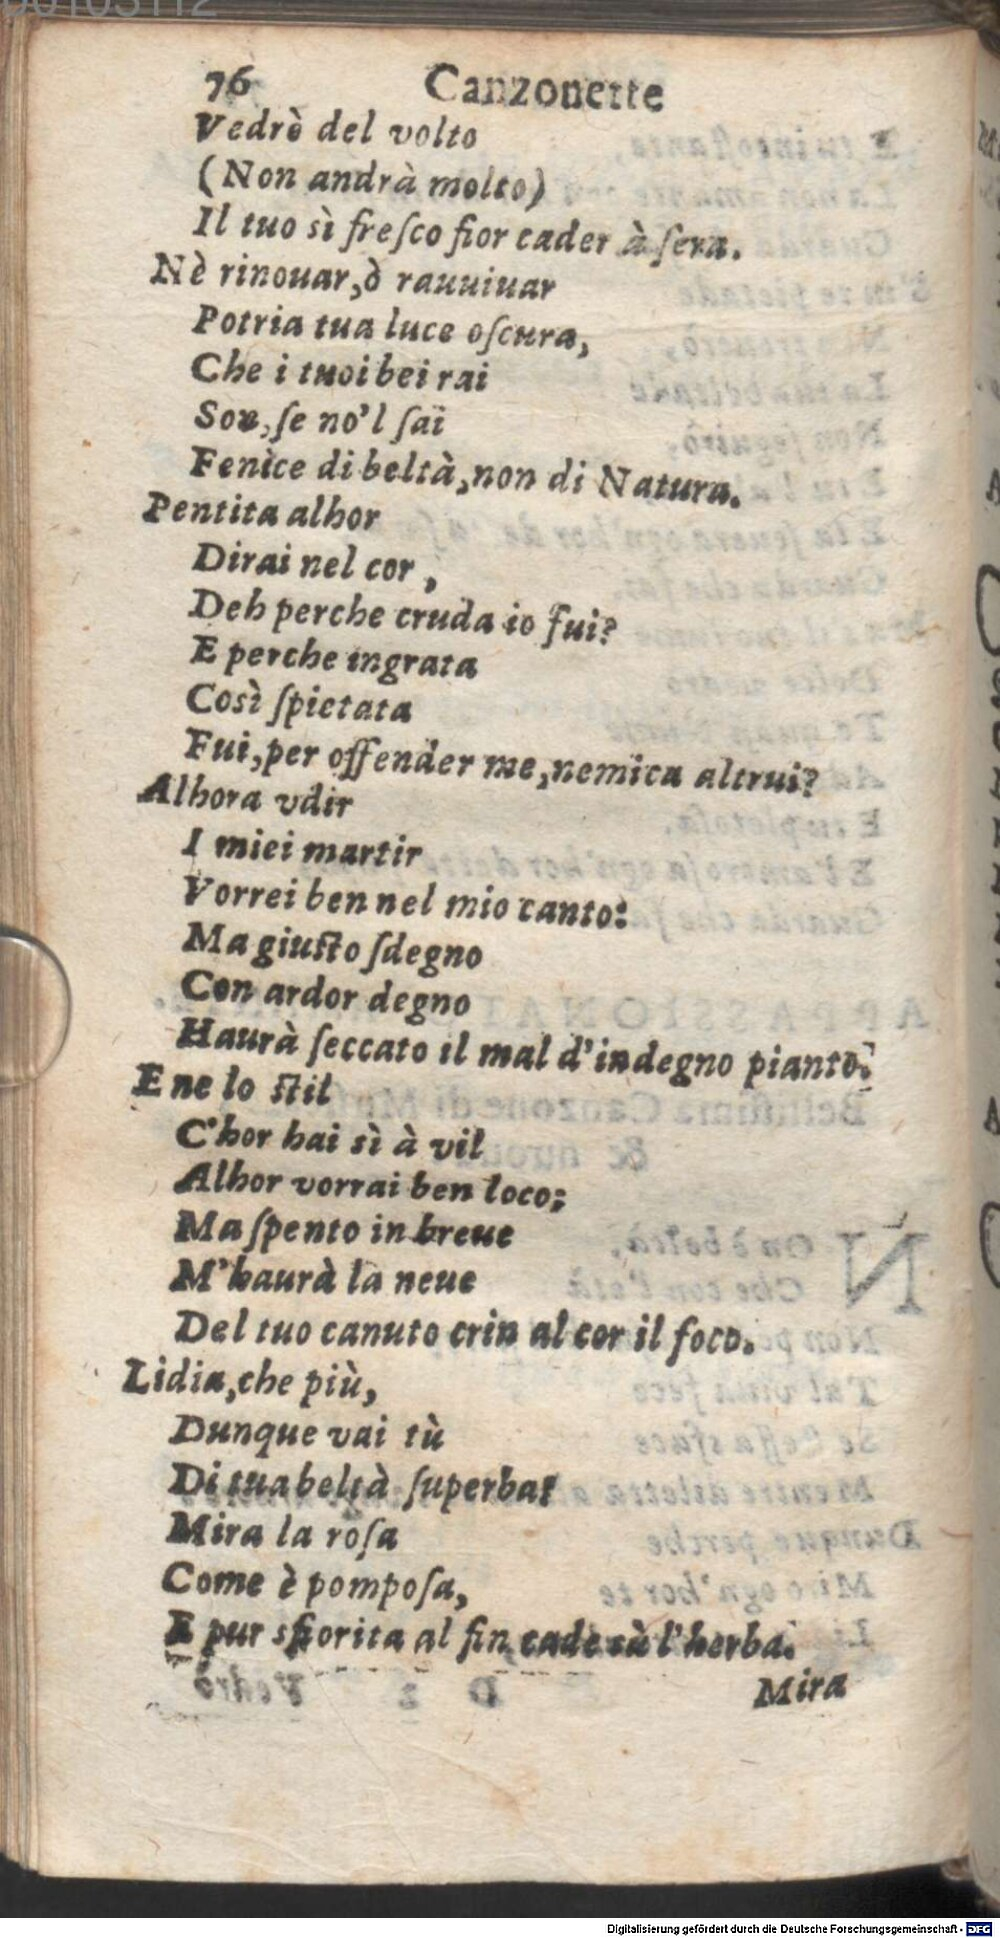 76 Canzonette
Vedrò del volto
(Non andrà molto)
Il tuo sì freſco fior cader à ſera.
Nè rinouar, ò rauuiuar
Potria tua luce oſcura,
Che i tuoi bei rai
Son, ſe no'l ſai
Fenice di beltà, non di Natura.
Pentita alhor
Dirai nel cor,
Deh perche cruda io fui?
E perche ingrata
Così ſpietata
Fui, per offender me, nemica altrui?
Alhora vdir
I miei martir
Vorrei ben nel mio canto:
Ma giuſto ſdegno
Con ardor degno
Haurà ſeccato il mal d'indegno pianto.
E ne lo ſtil
C'hor hai sì à vil
Alhor vorrai ben loco;
Ma ſpento in breue
M'haurà la neue
Del tuo canuto crin al cor il foco.
Lidia, che più,
Dunque vai tù
Di tua beltà ſuperba?
Mira la roſa
Come è pompoſa,
E pur sfiorita al fin cade sù l'herba.
Mira
Digitalisierung gefördert durch die Deutsche Forschungsgemeinschaft - DFG